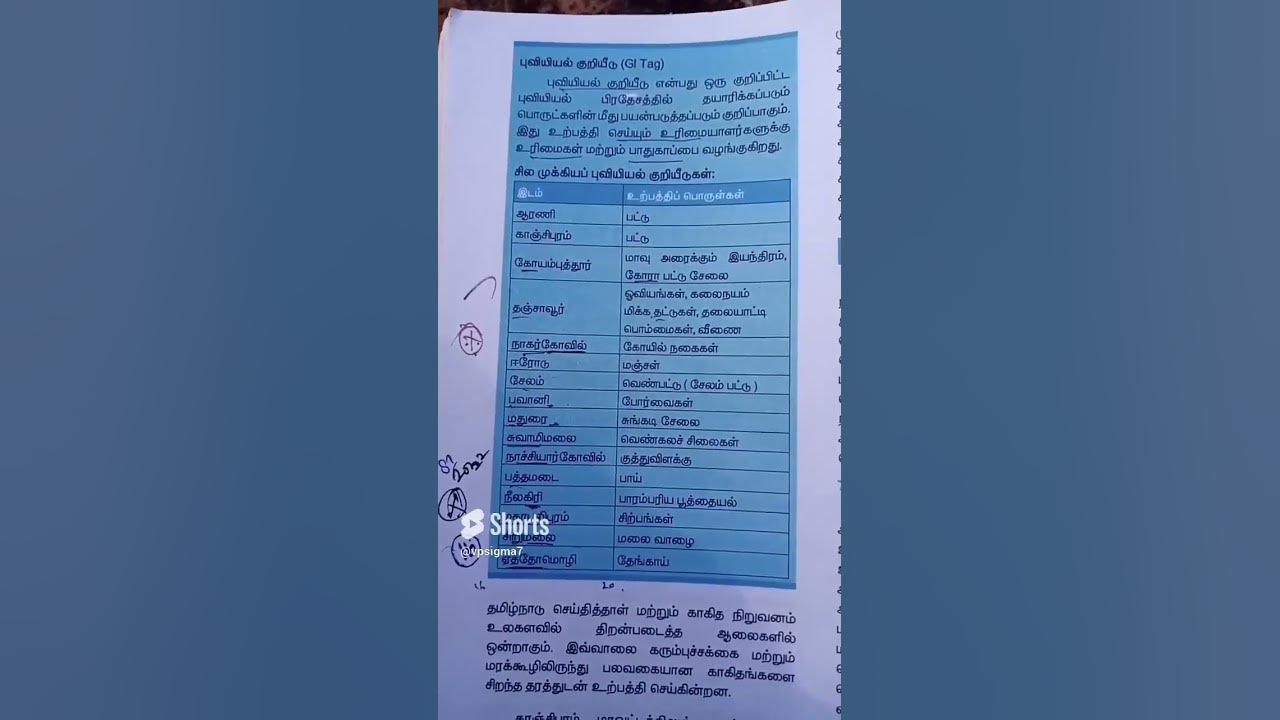 புவியியல் குறியீடு (GI Tag)
புவியியல் குறியீடு என்பது ஒரு குறிப்பிட்ட
புவியியல் பிரதேசத்தில் தயாரிக்கப்படும்
பொருட்களின் மீது பயன்படுத்தப்படும் குறிப்பாகும்.
இது உற்பத்தி செய்யும் உரிமையாளர்களுக்கு
உரிமைகள் மற்றும் பாதுகாப்பை வழங்குகிறது.
சில முக்கியப் புவியியல் குறியீடுகள்:
இடம் உற்பத்திப் பொருள்கள்
ஆரணி பட்டு
காஞ்சிபுரம் பட்டு
கோயம்புத்தூர் மாவு அரைக்கும் இயந்திரம்,
கோரா பட்டு சேலை
தஞ்சாவூர் ஓவியங்கள், கலைநயம்
மிக்க தட்டுகள், தலையாட்டி
பொம்மைகள், வீணை
நாகர்கோவில் கோயில் நகைகள்
ஈரோடு மஞ்சள்
சேலம் வெண்பட்டு ( சேலம் பட்டு )
பவானி போர்வைகள்
மதுரை சுங்கடி சேலை
சுவாமிமலை வெண்கலச் சிலைகள்
நாச்சியார்கோவில் குத்துவிளக்கு
பத்தமடை பாய்
நீலகிரி பாரம்பரிய பூத்தையல்
சிற்பங்கள்
Shorts
சிறுமலை மலை வாழை
@vpsigma7
ஏத்தோமொழி தேங்காய்
தமிழ்நாடு செய்தித்தாள் மற்றும் காகித நிறுவனம்
உலகளவில் திறன்படைத்த ஆலைகளில்
ஒன்றாகும். இவ்வாலை கரும்புச்சக்கை மற்றும்
மரக்கூழிலிருந்து பலவகையான காகிதங்களை
சிறந்த தரத்துடன் உற்பத்தி செய்கின்றன.